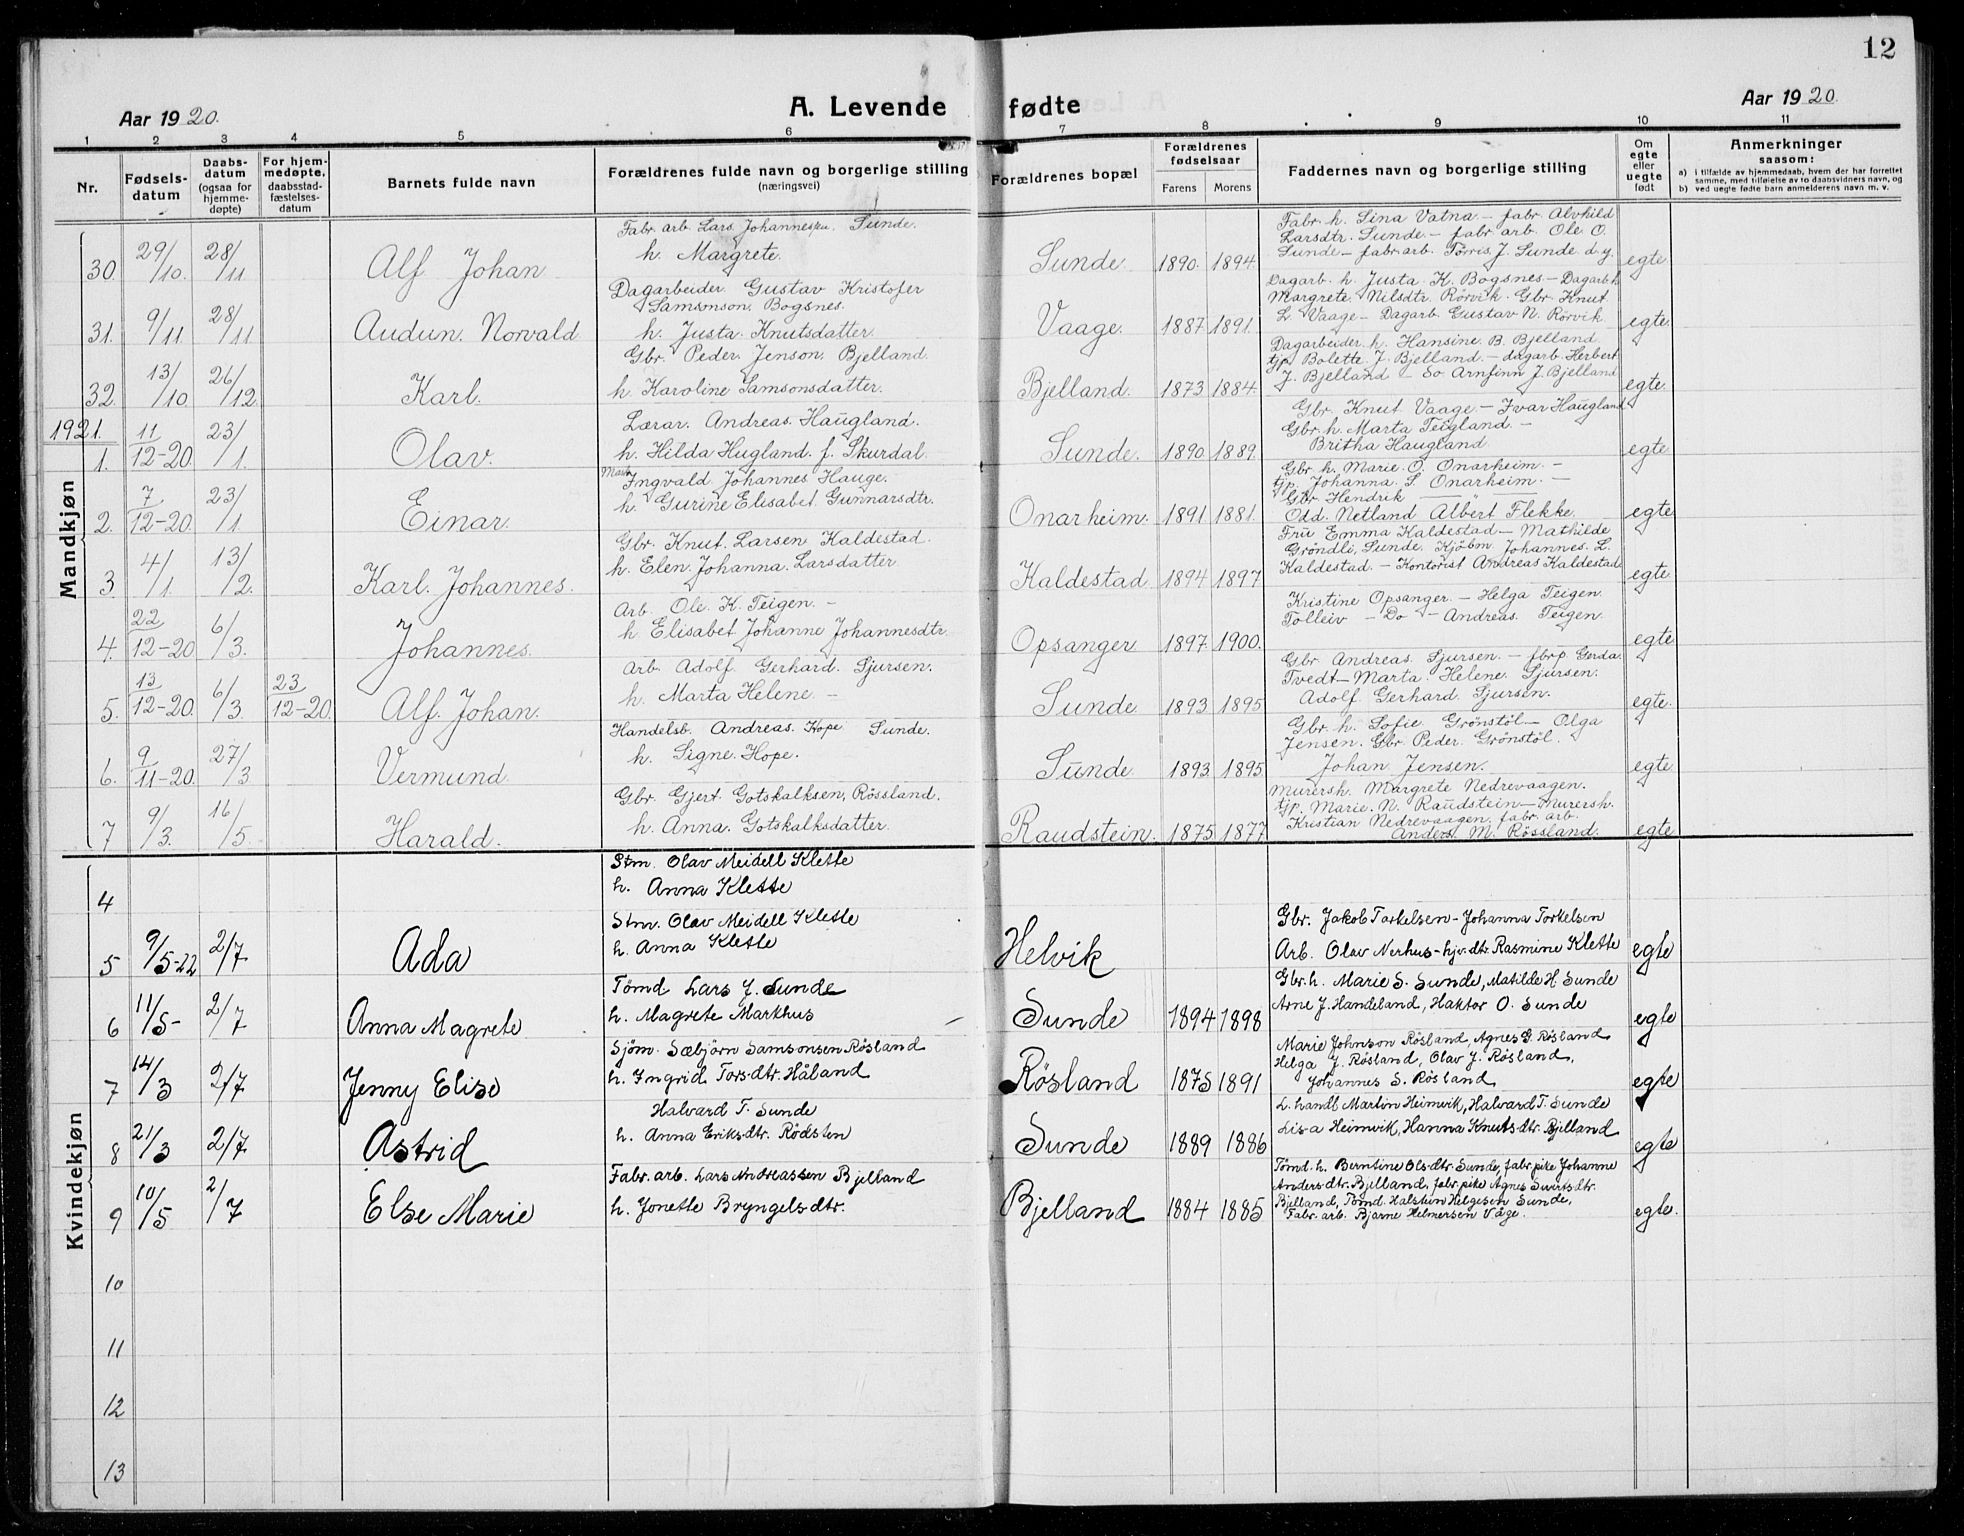 12
Aar 1920.
A. Levende fødte
Aar 1920.
1 2 3 4 5 6 7 8 9 10 11
Nr.
Fødsels-
datum
Daabs-
datum
(ogsaa for
hjemme-
døpte)
For hjem-
medøpte,
daabsstad-
fæstelses-
datum
Barnets fulde navn
Forældrenes fulde navn og borgerlige stilling
(næringsvei)
Forældrenes bopæl
Forældrenes
fødselsaar
Farens Morens
Faddernes navn og borgerlige stilling
Om
egte
eller
uegte
født
Anmerkninger
saasom:
a) i tilfælde av hjemmedaab, hvem der har forrettet
samme, med tilføielse av to daabsvidners navn, og
b) ved uegte fødte barn anmelderens navn m. v.
Mandkjøn
30. 29/10. 28/11 Alf Johan
Fabr. arb. Lars Johannessen Sunde.
h. Margrete.
Sunde 1890. 1894.
Fabr. h. Lina Vatna – fabr. Alvhild
Larsdtr. Sunde – fabr. arb. Ole O.
Sunde – fabr. arb. Torris J. Sunde d.y.
egte
31. 9/11 28/11 Audun. Norvald
Dagarbeider Gustav Kristofer
Samsonson, Bogsnes.
h. Justa Knutsdatter.
Vaage. 1887 1891.
Dagarb. h. Justa K. Bogsnes – Dagarb.h
Margrete Nilsdtr. Rörvik. Gbr. Knut
L. Vaage – Dagarb. Gustav N. Rörvik
egte
32. 13/10 26/12. Karl.
Gbr. Peder. Jenson, Bjelland.
h. Karoline Samsonsdatter.
Bjelland. 1873 1884.
Dagarbeider h. Hansine B. Bjelland
tjp. Bolette J. Bjelland – dagarb Herbert
J. Bjelland – So. Arnfinn J. Bjelland
egte.
1921.
1. 11/12-20. 23/1. Olav.
Lærar. Andreas Haugland.
h. Hilda Hugland. f. Skurdal.
Sunde. 1890 1889.
Gbr. Knut Vaage – Ivar Haugland
Gbr. h. Marta Teigland –
Britha Haugland
egte
2. 7/12-20. 23/1. Einar.
Ingvald Johannes Hauge.
h. Gurine Elisabet Gunnarsdtr.
Onarheim. 1891 1881.
Gbr. h. Marie. O. Onarheim. –
tjp. Johanna. S. Onarheim. –
Gbr. Hendrik
Odd. Netland Albert Flekke.
egte
3. 4/1. 13/2. Karl. Johannes.
Gbr. Knut. Larsen Kaldestad.
h. Elen. Johanna. Larsdatter
Kaldestad 1894 1897
Fru Emma Kaldestad – Mathilde
Gröndli, Sunde. Kjøbm Johannes. L.
Kaldestad – Kontorist Andreas Kaldestad
egte
4. 22/12-20 6/3. Johannes.
Arb. Ole. K. Teigen. –
h Elisabet Johanne Johannesdtr.
Opsanger 1897. 1900.
Kristine Opsanger. – Helga Teigen.
Tolleiv – Do – Andreas. Teigen.
egte
5. 13/12-20. 6/3. 23/12-20. Alf. Johan.
Arb. Adolf Gerhard Sjursen.
h. Marta Helene –
Sunde 1893 1895
Gbr Andreas. Sjursen. – fbrp Gerda.
Tvedt – Marta. Helene. Sjursen.
Adolf Gerhard Sjursen.
egte.
6. 9/11-20. 27/3 Vermund
Handelsb. Andreas. Hope Sunde.
h. Signe. Hope.
Sunde 1893 1895
Gbr. h. Sofie. Grönstöl – Olga
Jensen. Gbr. Peder Grönstöl.
Johan Jensen.
egte
7 9/3. 16/5. Harald.
Gbr. Gjert Gotskalksen, Rössland.
h. Anna. Gotskalksdatter.
Raudstein. 1875 1877
Murersh. Margrete Nedrevaagen.
tjp. Marie. N. Raudstein – Murersh.
Kristian Nedrevaagen. fabr. arb.
Anders M. Rössland.
egte
Kvindekjøn
4
Stm. Olav Meidell Klette
h. Anna Klette
5 9/5-22 2/7 Ada
Stm. Olav Meidell Klette
h. Anna Klette
Helvik
Gbr. Jakob Torkelsen – Johanna Torkelsen
Arb. Olav Nerhus – hjv. dtr. Rasmine Klette
egte
6 11/5- 2/7 Anna Magrete
Tømd Lars J. Sunde
h. Magrete Markhus
Sunde 1894 1898
Gbr. h. Marie S. Sunde, Matilde H. Sunde
Arne J. Handeland, Haktor O. Sunde
egte
7 14/3 2/7 Jenny Elise
Sjöm. Sæbjörn Samsonsen Røsland
h. Ingrid Torsdtr. Håland
Røsland 1875 1891
Marie Johnson Røsland, Agnes G. Røsland
Helga J. Røsland, Olav J. Røsland,
Johannes S. Røsland
egte
8 21/3 2/7 Astrid
Halvard T. Sunde
h. Anna Eriksdtr. Rødsten
Sunde 1889 1886
L. handl Martin Heimvik, Halvard T. Sunde
Lisa Heimvik, Hanna Knutsdtr. Bjelland
egte
9 10/5 2/7 Else Marie
Fabr. arb. Lars Andreassen Bjelland
h. Jonette Bryngelsdtr.
Bjelland 1884 1885
Tømd. h. Berntine Olsdtr. Sunde, fabr. pike Johanne
Andersdtr. Bjelland, fabr. pike Agnes Sivertsdtr.
Bjelland, Tømd. Halstein Helgesen Sunde,
Fabr. arb. Bjarne Helmersen Våge.
egte.
10
11
12
13